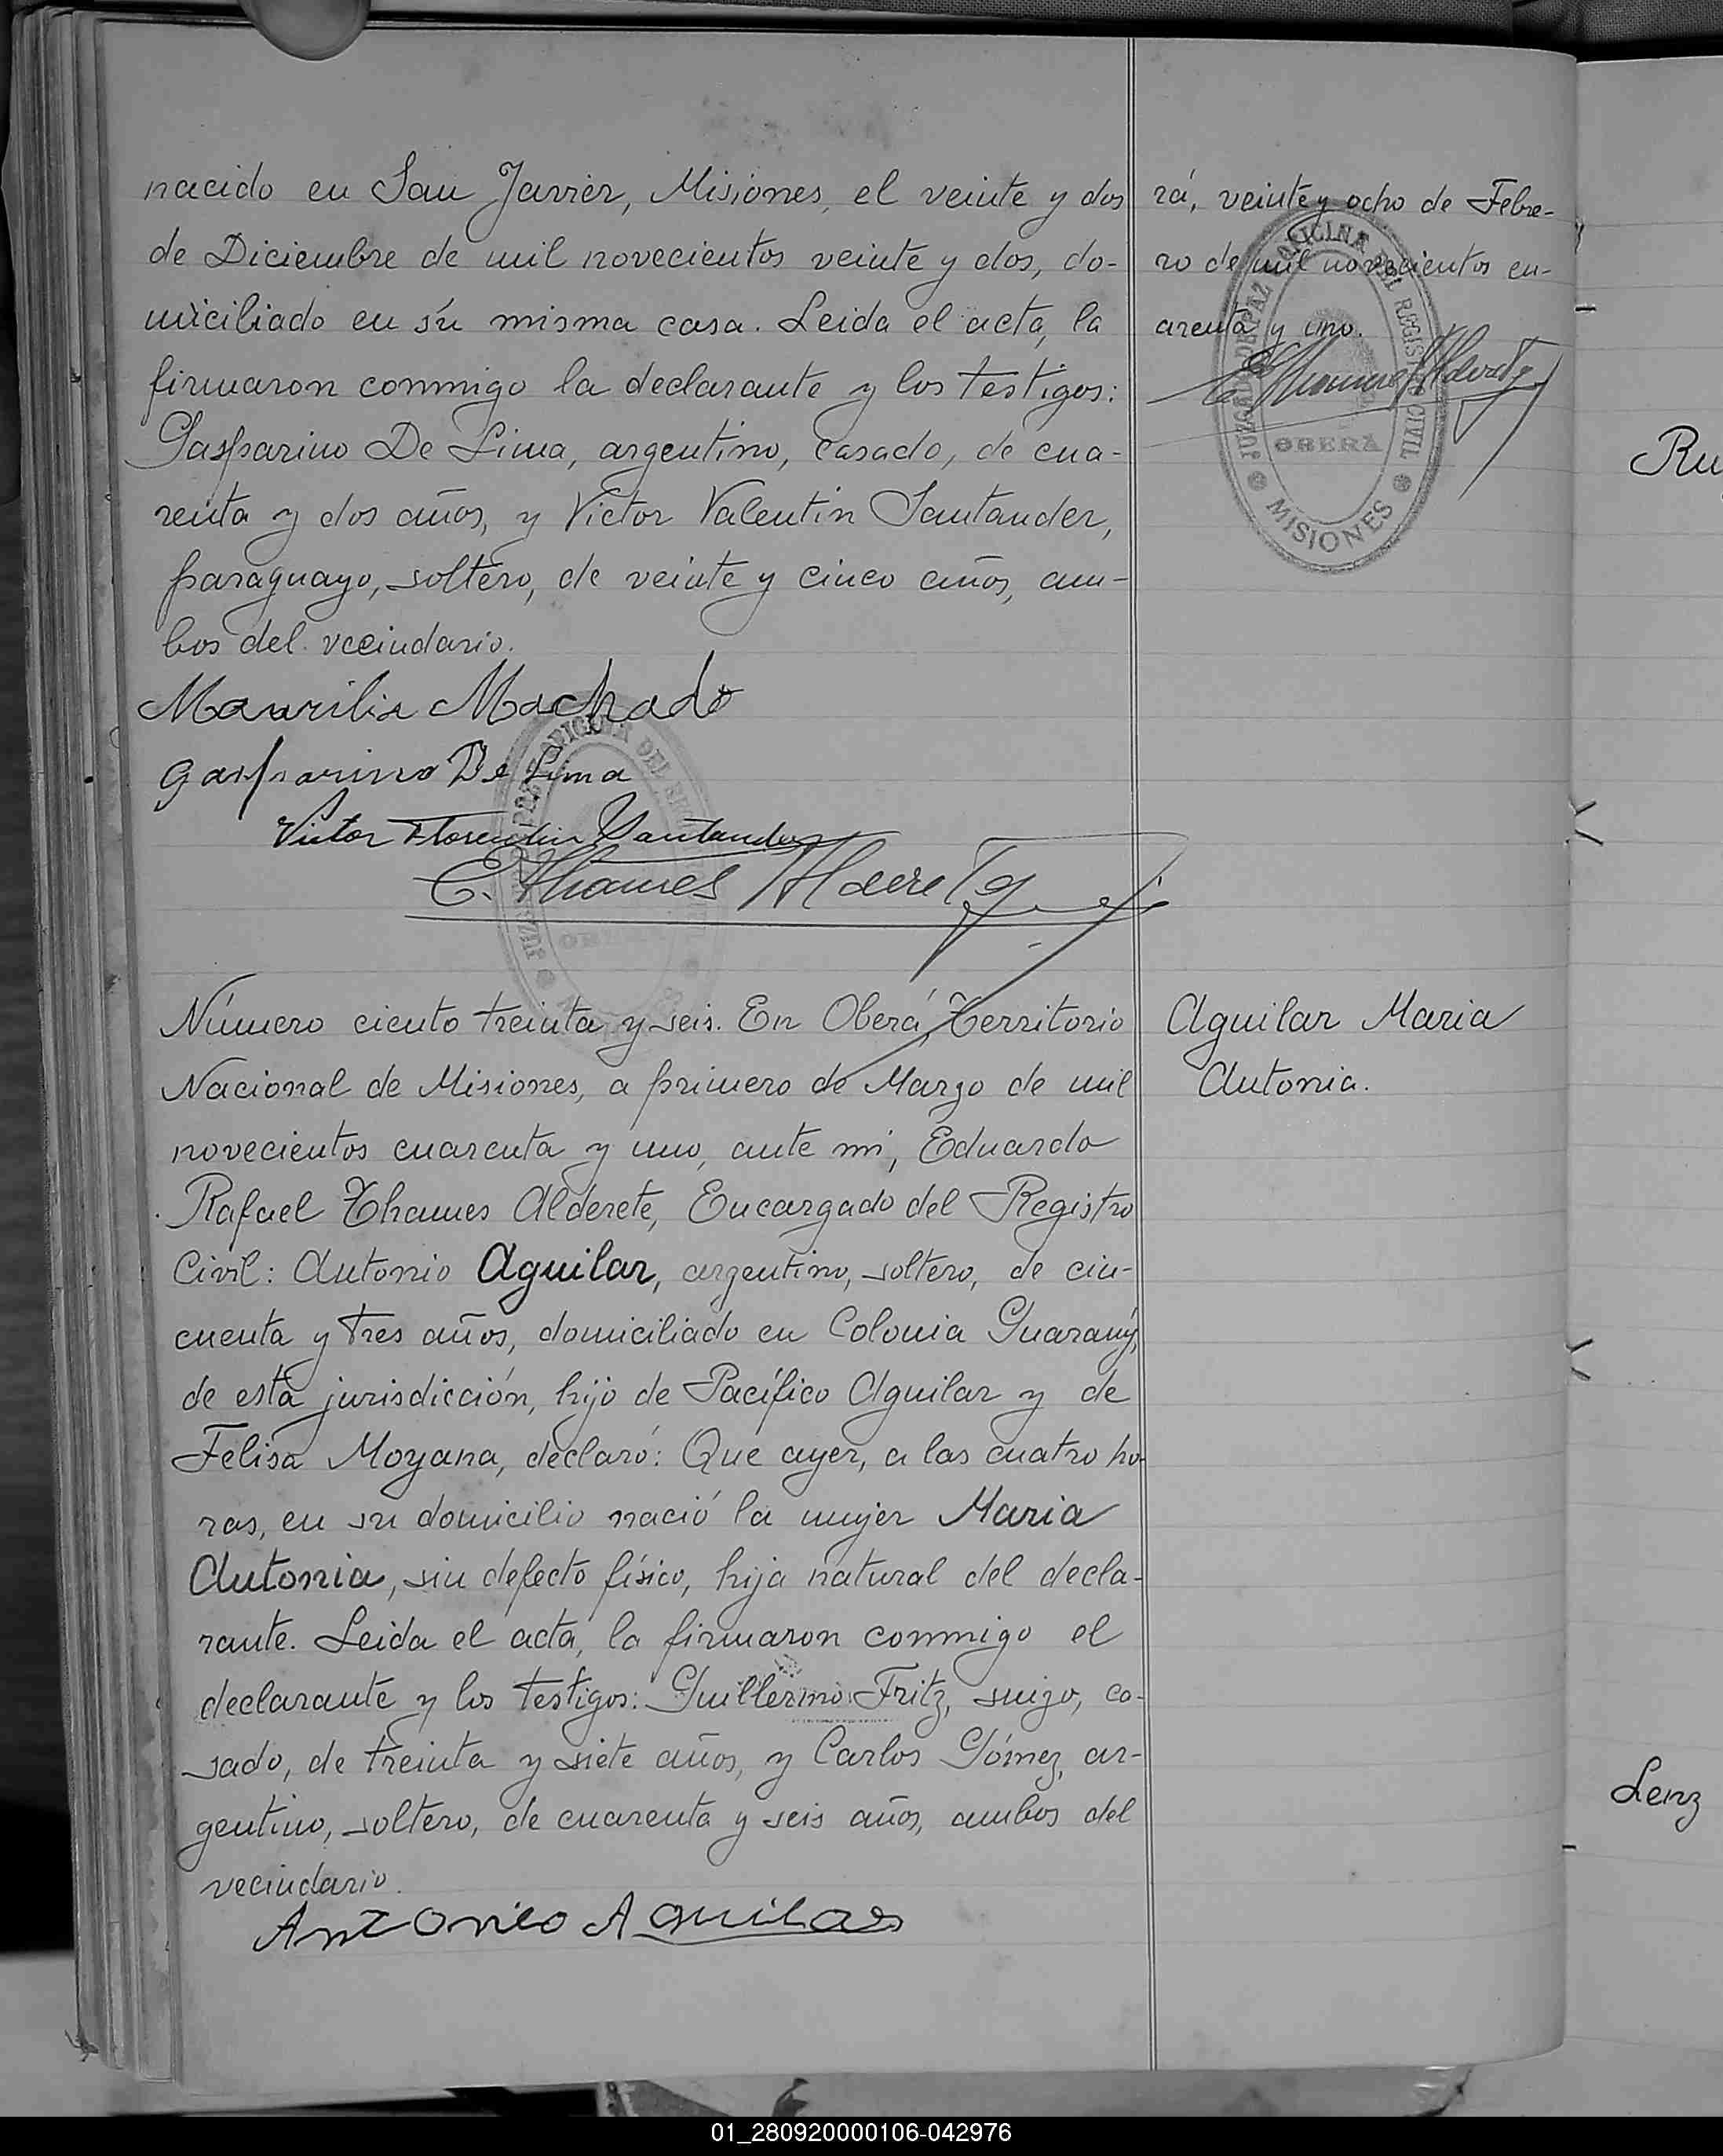 nacido en San Javier, Misiones, el veinte y dos
de Diciembre de mil novecientos veinte y dos, do-
miciliado en su misma casa. Leida el acta, la
firmaron conmigo la declarante y los testigos:
Gasparino De Lima, argentino, casado, de cua-
renta y dos años, y Victor Valentin Santander,
paraguayo, soltero, de veinte y cinco años, am-
bos del vecindario.
Maurilia Machado
Gasparino De Lima
Victor Florentin Santander
E. Thames Alderete
rá, veinte y ocho de Febre-
ro de mil novecientos cu-
arenta y uno.
E Thames Alderete
JUZGADO DE PAZ OFICINA DEL REGISTRO CIVIL
OBERÁ
MISIONES
Número ciento treinta y seis. En Oberá, Territorio
Nacional de Misiones, a primero de Marzo de mil
novecientos cuarenta y uno, ante mi, Eduardo
Rafael Thames Alderete, Encargado del Registro
Civil: Antonio Aguilar, argentino, soltero, de cin-
cuenta y tres años, domiciliado en Colonia Guarany,
de esta jurisdicción, hijo de Pacífico Aguilar y de
Felisa Moyana, declaró: Que ayer, a las cuatro ho-
ras, en su domicilio nació la mujer Maria
Antonia, sin defecto físico, hija natural del decla-
rante. Leida el acta, la firmaron conmigo el
declarante y los testigos: Guillermo Fritz, suizo, ca-
sado, de treinta y siete años, y Carlos Gómez, ar-
gentino, soltero, de cuarenta y seis años, ambos del
vecindario.
Antonio Aguilar
Aguilar Maria
Antonia.
Ru
Lenz
01_280920000106-042976